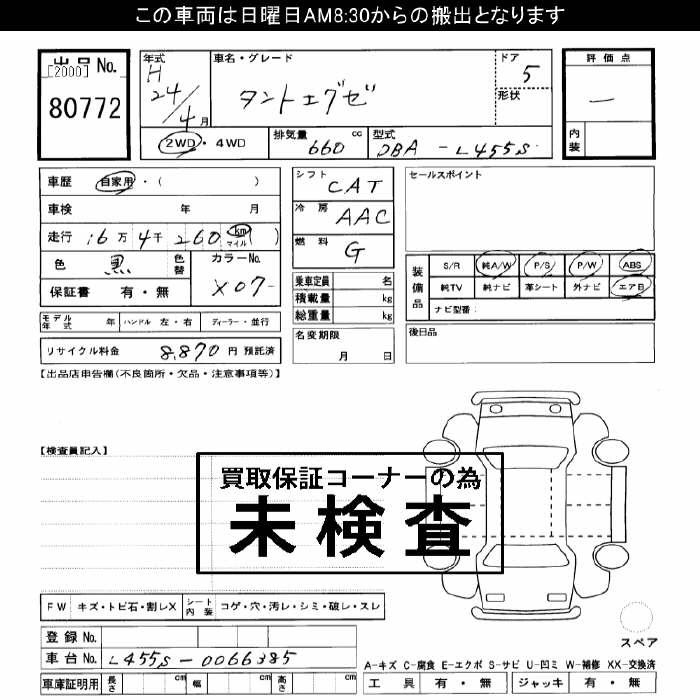 この車両は日曜日AM8:30からの搬出となります
出品 No.
[2000]
80772
年式 車名・グレード ドア 評価点
H 24/4月 タントエグゼ 5 一
形状
内装
2WD・4WD 排気量 cc 型式
660 DBA-L455S
車歴 自家用・( )
車検 年 月
走行 16万 4千 260 km マイル ( )
色 黒 色替 カラーNo.
X07-
保証書 有・無
シフト CAT
冷房 AAC
燃料 G
乗車定員 名
積載量 kg
総重量 kg
セールスポイント
装備品 S/R 純A/W P/S P/W ABS
純TV 純ナビ 革シート 外ナビ エアB
ナビ型番:
モデル年式 年 ハンドル 左・右 ディーラー・並行
名変期限
月 日
後日品
リサイクル料金 8,870 円 預託済
【出品店申告欄(不良箇所・欠品・注意事項等)】
【検査員記入】
買取保証コーナーの為
未検査
FW キズ・トビ石・割レX シート内装 コゲ・穴・汚レ・シミ・破レ・スレ
スペア
登録 No.
車台 No. L455S-0066385
A-キズ C-腐食 E-エクボ S-サビ U-凹ミ W-補修 XX-交換済
車庫証明用 長さ cm 幅 cm 高さ cm
工具 有・無 ジャッキ 有・無